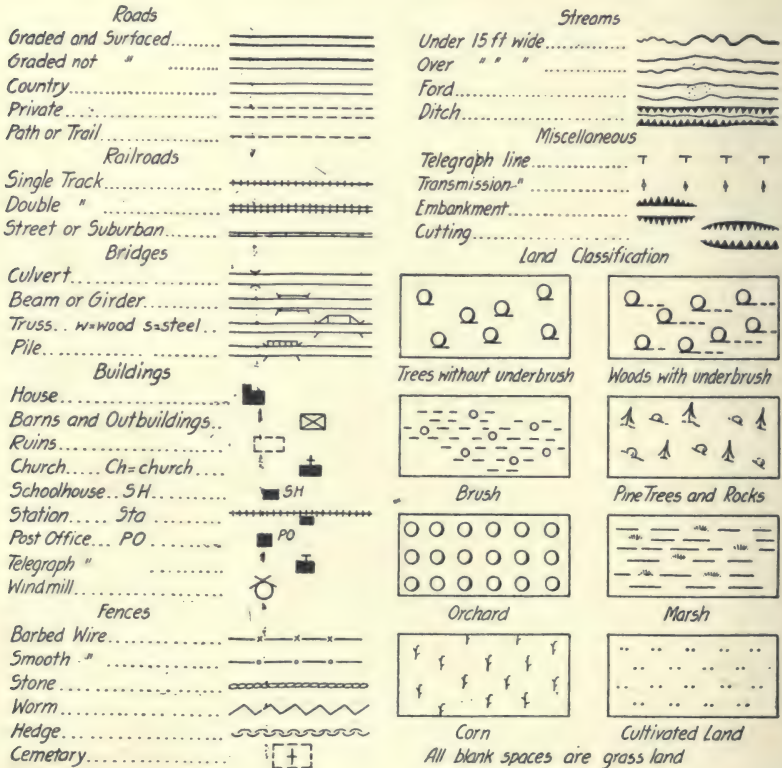 Roads
Graded and Surfaced
Graded not "
Country
Private
Path or Trail
Railroads
Single Track
Double "
Street or Suburban
Bridges
Culvert
Beam or Girder
Truss.. w=wood s=steel
Pile
Buildings
House
Barns and Outbuildings
Ruins
Church..... Ch=church
Schoolhouse.. SH
SH
Station..... Sta
Post Office... PO
PO
Telegraph "
Windmill
Fences
Barbed Wire
Smooth "
Stone
Worm
Hedge
Cemetary
Streams
Under 15 ft wide
Over " " "
Ford
Ditch
Miscellaneous
Telegraph line
Transmission "
Embankment
Cutting
Land Classification
Trees without underbrush
Woods with underbrush
Brush
Pine Trees and Rocks
Orchard
Marsh
Corn
Cultivated Land
All blank spaces are grass land